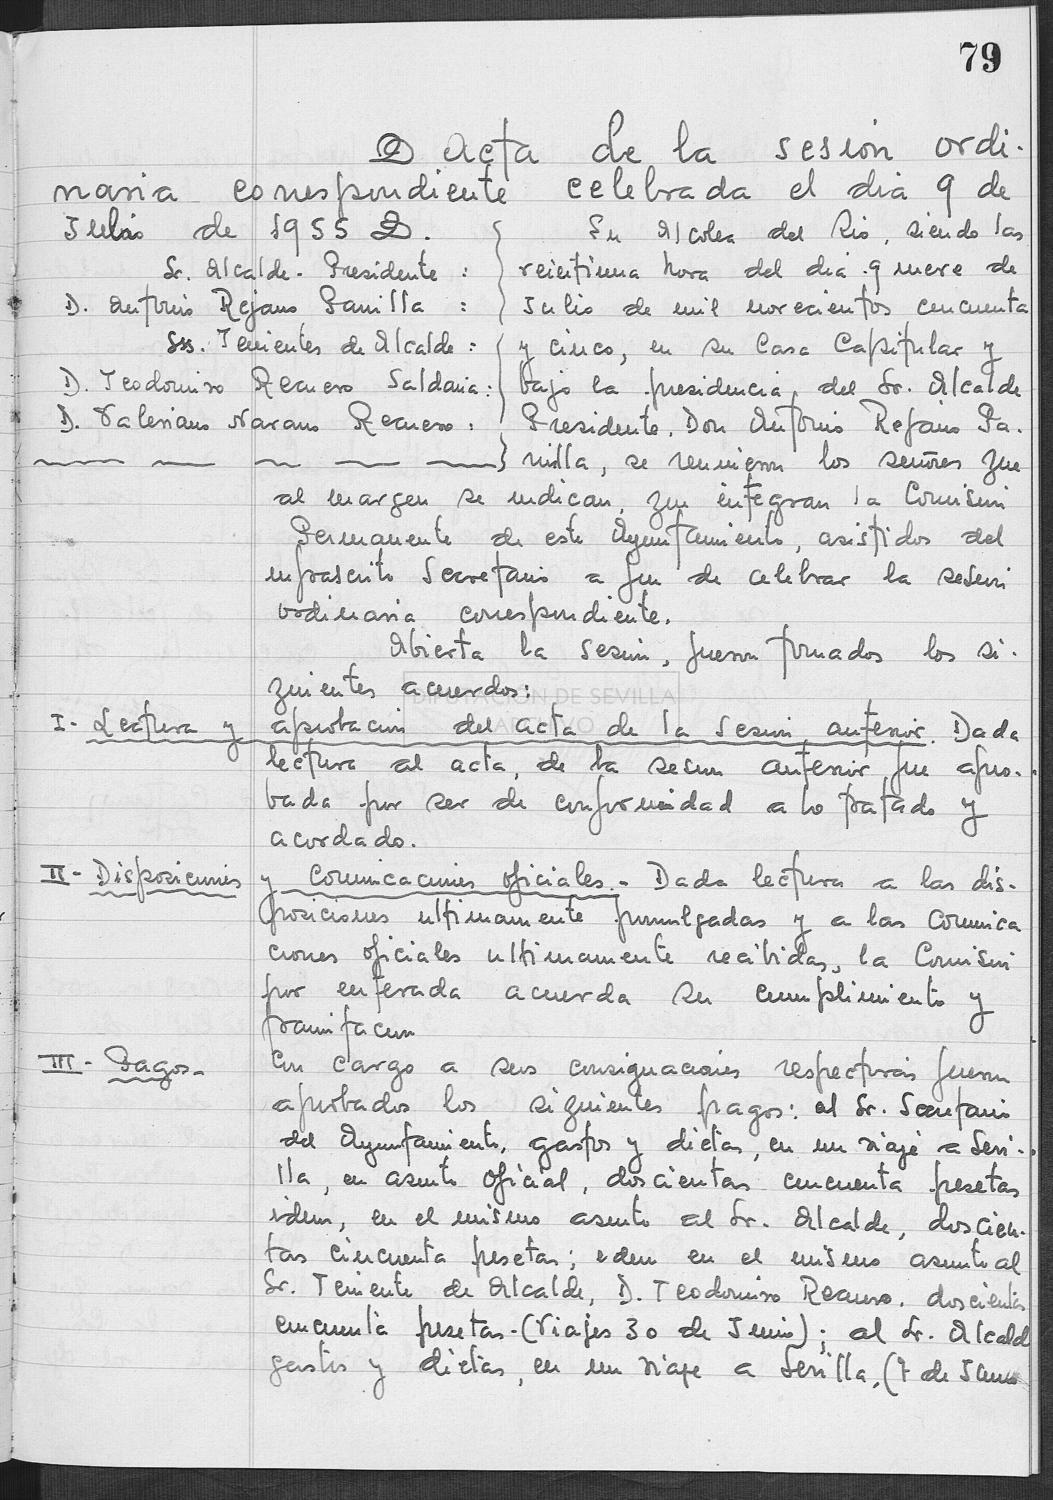 79
Acta de la sesión ordi-
naria correspondiente celebrada el dia 9 de
Julio de 1955.
Sr. Alcalde-Presidente:
D. Antonio Rejano Panilla:
Srs. Tenientes de Alcalde:
D. Teodomiro Recuero Saldaña:
D. Valeriano Naranjo Recuero:
En Alcolea del Rio, siendo las
veintiuna hora del dia 9 nueve de
Julio de mil novecientos cincuenta
y cinco, en su Casa Capitular y
bajo la presidencia del Sr. Alcalde
Presidente, Don Antonio Rejano Pa-
nilla, se reunieron los señores que
al margen se indican, que integran la Comisión
Permanente de este Ayuntamiento, asistidos del
infrascrito Secretario a fin de celebrar la sesión
ordinaria correspondiente.
Abierta la sesión, fueron tomados los si-
guientes acuerdos:
DIPUTACIÓN DE SEVILLA
ARCHIVO
I- Lectura y aprobación del acta de la sesión anterior. Dada
lectura al acta, de la sesión anterior fue apro-
bada por ser de conformidad a lo tratado y
acordado.
II- Disposiciones y Comunicaciones oficiales.- Dada lectura a las dis-
posiciones ultimamente promulgadas y a las comunica
ciones oficiales ultimamente recibidas, la Comisión
por enterada acuerda su cumplimiento y
tramitación
III- Pagos.- Con cargo a sus consignaciones respectivas fueron
aprobados los siguientes pagos: al Sr. Secretario
del Ayuntamiento, gastos y dietas, en un viaje a Sevi-
lla, en asunto oficial, doscientas cincuenta pesetas
idem, en el mismo asunto al Sr. Alcalde, doscien-
tas cincuenta pesetas; idem en el mismo asunto al
Sr. Teniente de Alcalde, D. Teodomiro Recuero, doscientas
cincuenta pesetas.-(Viajes 30 de Junio); al Sr. Alcald
gastos y dietas, en un viaje a Sevilla, (7 de